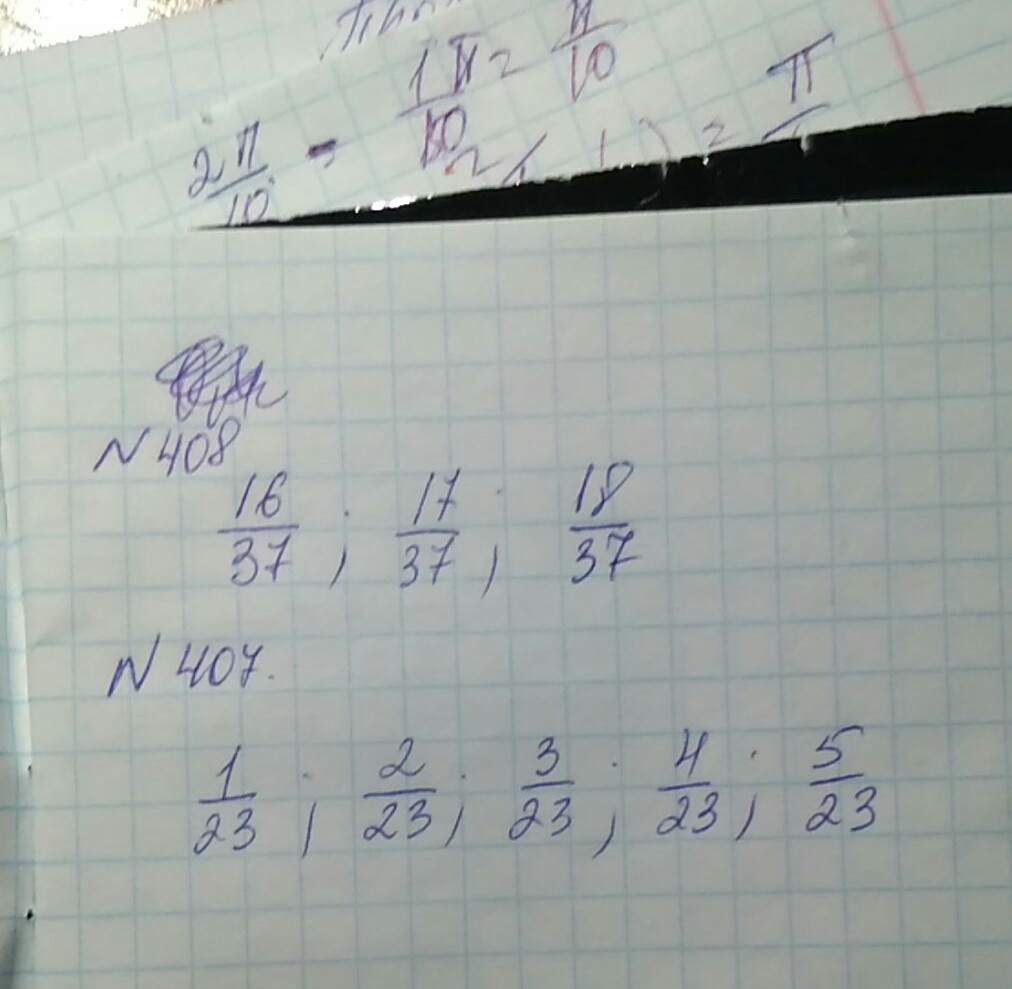 2π/10 - 1π/10 = π/10
N 408
16/37 ; 17/37 ; 18/37
N 407.
1/23 ; 2/23 ; 3/23 ; 4/23 ; 5/23